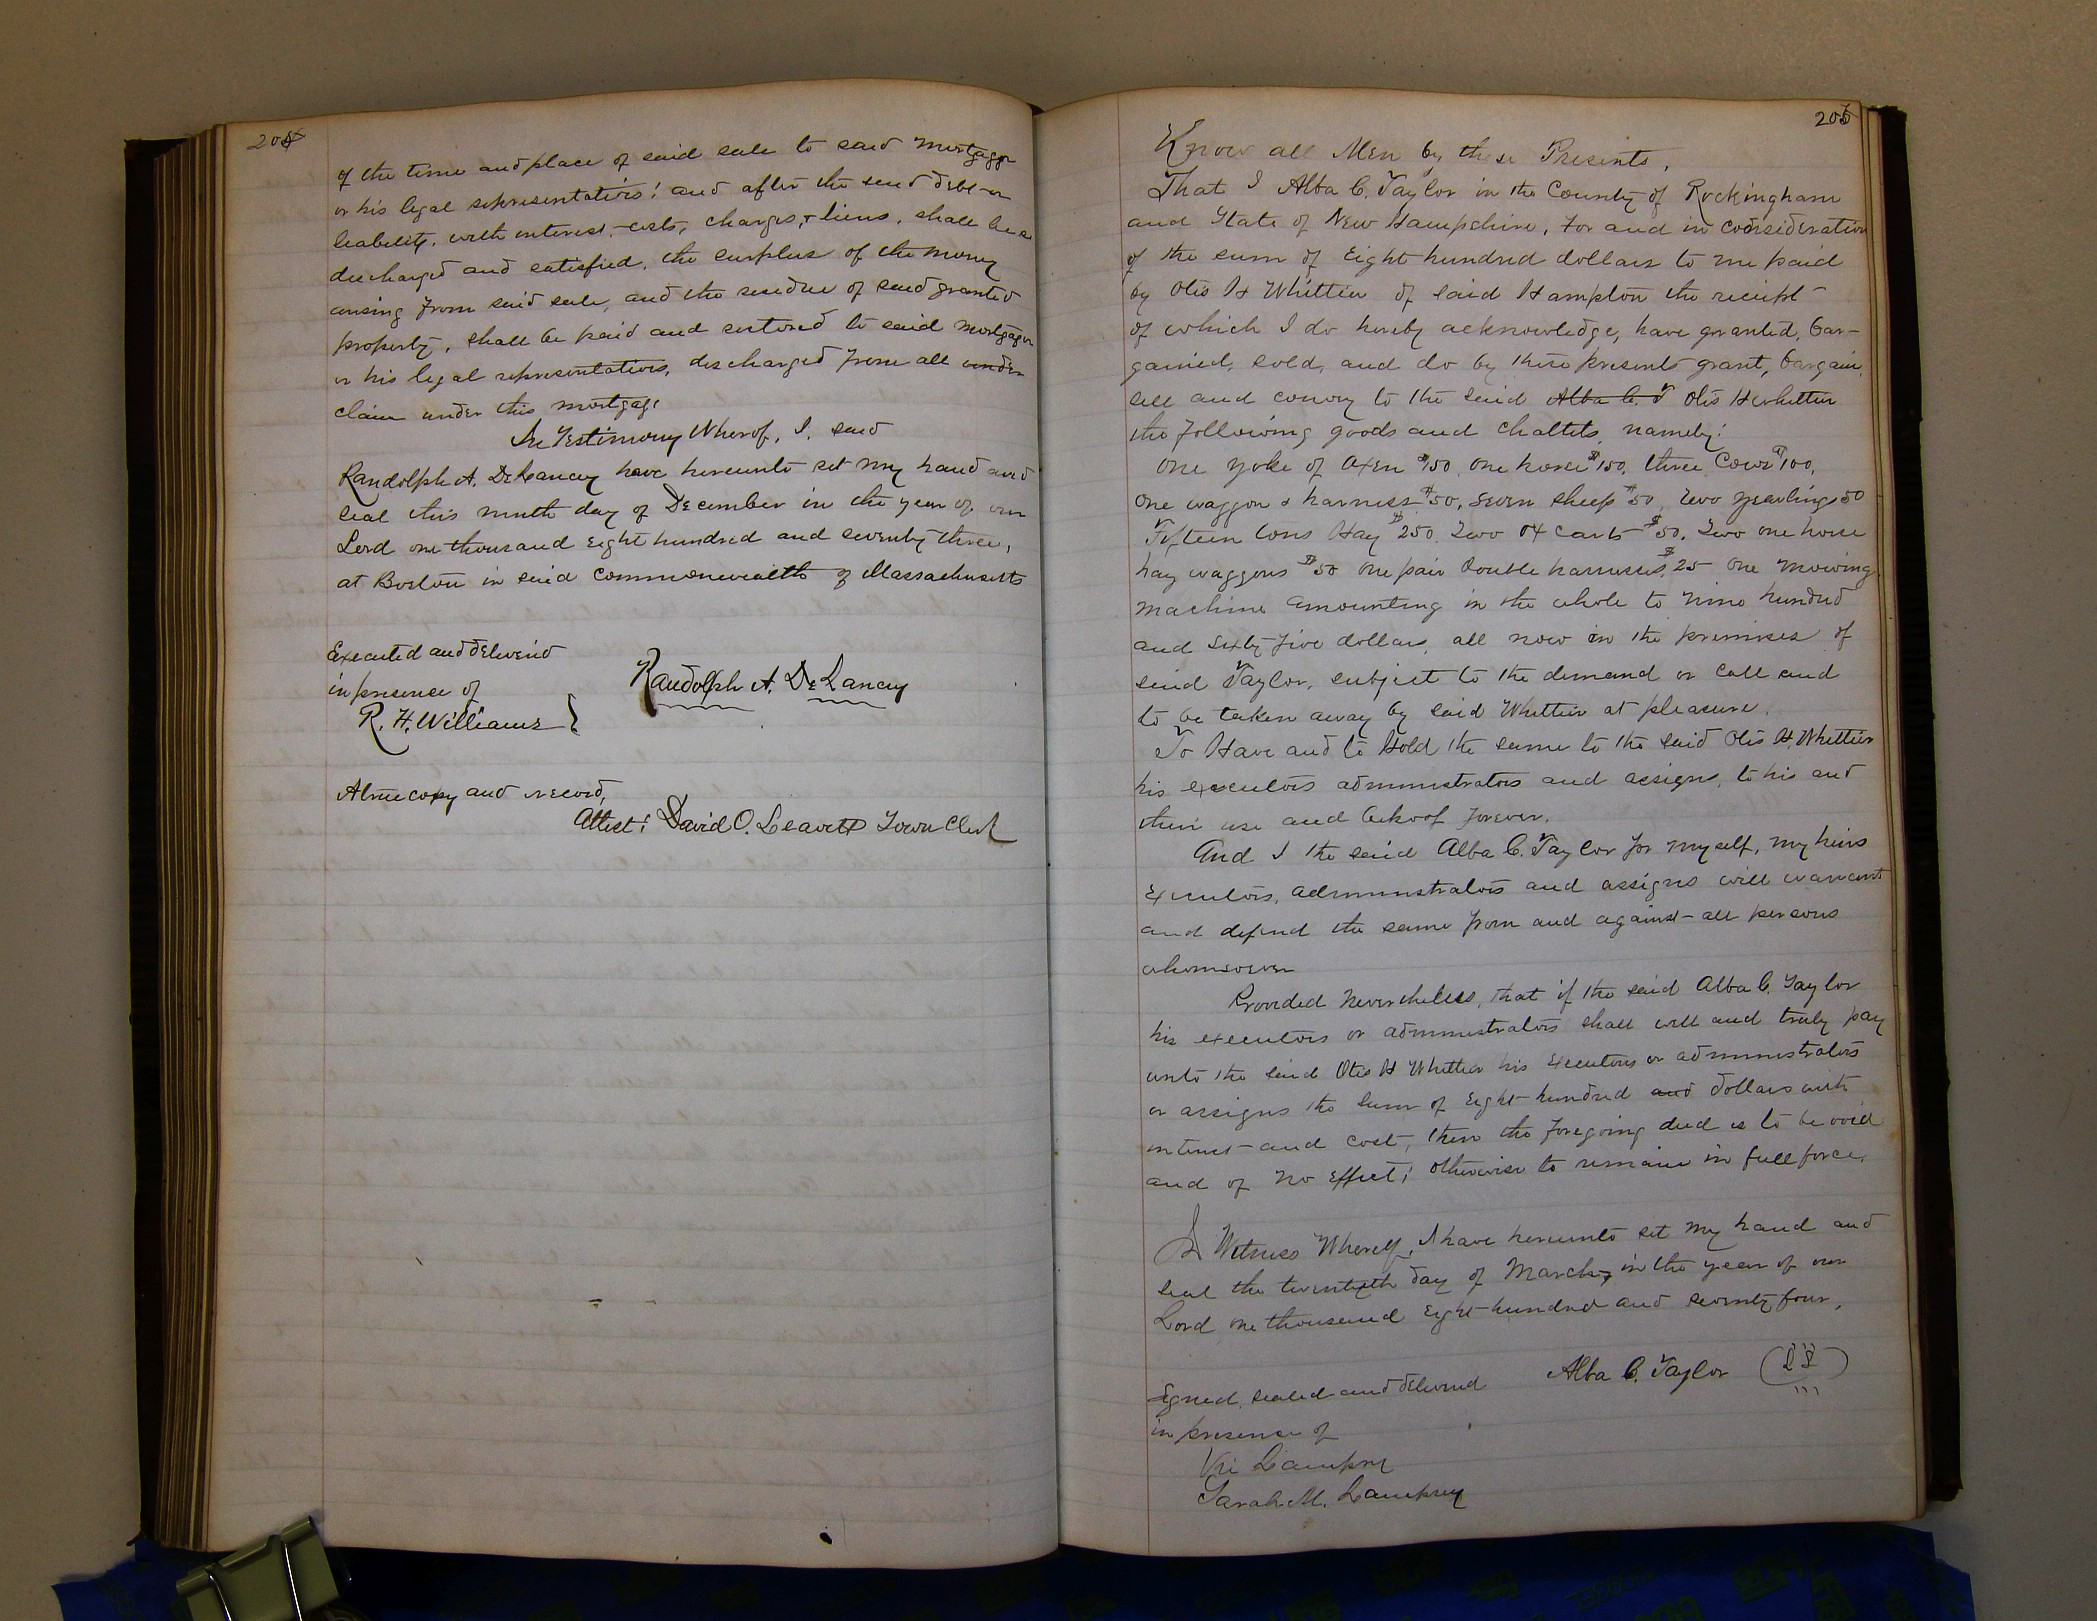 204
of the time and place of said sale to said Mortgagor
or his legal representatives; and after the said debt or
liability, with interest, costs, charges, & liens, shall be
discharged and satisfied, the surplus of the money
arising from said sale, and the residue of said granted
property, shall be paid and restored to said Mortgagor
or his legal representatives, discharged from all under
claim under this mortgage
In Testimony Wherof, I, said
Randolph A. DeLancey have hereunto set my hand and
seal this ninth day of December in the year of our
Lord one thousand Eight hundred and seventy three,
at Boston in said Commonwealth of Massachusetts
Executed and delivered
in presence of
R. H. Williams
Randolph A. DeLancey
A true copy and record,
Attest; David O. Leavitt Town Clerk
205
Know all Men by these Presents,
That I Alba C. Taylor in the County of Rockingham
and State of New Hampshire, for and in consideration
of the sum of Eight hundred dollars to me paid
by Otis H Whittier of said Hampton the receipt
of which I do hereby acknowledge, have granted, bar-
gained, sold, and do by these presents grant, bargain,
sell and convey to the said Alba C. T Otis H Whittier
the following goods and chattels, namely;
One yoke of Oxen $150, one horse $150, three Cows $100,
One waggon & harness $50, seven sheep $50, Two yearlings 50
Fifteen tons Hay $250. Two Ox carts $50. Two one horse
hay waggons $50 one pair double harnesses, $25 one mowing
machine amounting in the whole to nine hundred
and sixty five dollars, all now in the premises of
said Taylor, subject to the demand or call and
to be taken away by said Whittier at pleasure.
To Have and to Hold the same to the said Otis H. Whittier
his executors administrators and assigns, to his and
their use and behoof forever.
And I the said Alba C. Taylor for myself, my heirs
Executors, administrators and assigns will warrant
and defend the same from and against all persons
whomsoever
Provided nevertheless, that if the said Alba C. Taylor
his executors or administrators shall well and truly pay
unto the said Otis H Whittier his Executors or administrators
or assigns the sum of Eight hundred and dollars with
interest and cost, then the foregoing deed is to be void
and of no effect; otherwise to remain in full force.
In Witness Whereof, I have hereunto set my hand and
seal the twentieth day of March, in the year of our
Lord one thousand Eight hundred and seventy four,
Signed, sealed and delivered
Alba C. Taylor (LS)
in presence of
Uri Lamprey
Sarah M. Lamprey